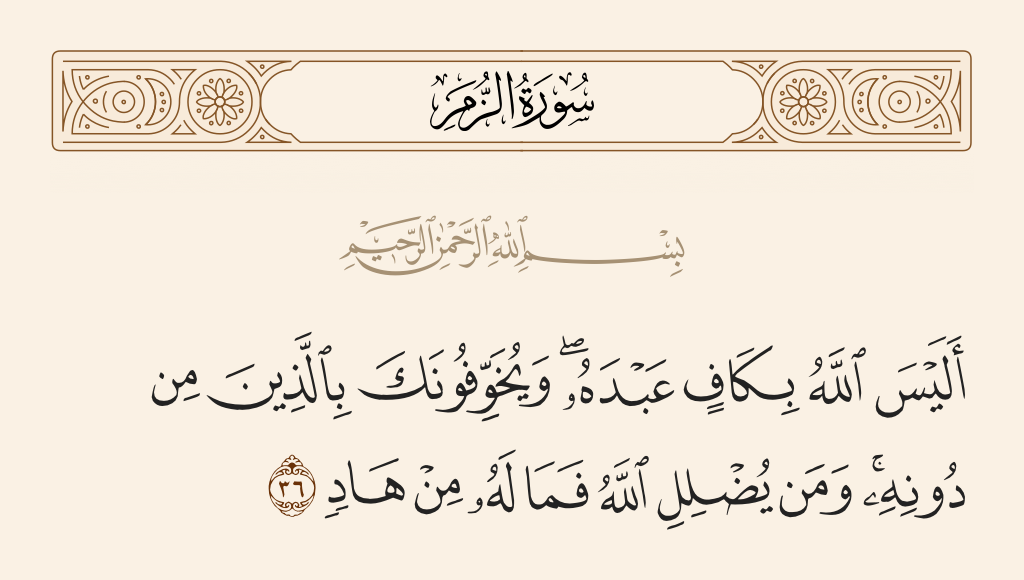 سُورَةُ الزُّمَرِ
بِسْمِ ٱللَّهِ ٱلرَّحْمَٰنِ ٱلرَّحِيمِ
أَلَيْسَ ٱللَّهُ بِكَافٍ عَبْدَهُۥ ۖ وَيُخَوِّفُونَكَ بِٱلَّذِينَ مِن
دُونِهِۦ ۚ وَمَن يُضْلِلِ ٱللَّهُ فَمَا لَهُۥ مِنْ هَادٍ ٣٦